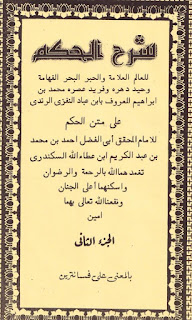 شرح الحكم
للعالم العلامة والحبر البحر الفهامة
وحيد دهره وفريد عصره محمد بن
ابراهيم المعروف بابن عباد النفزى الرندى
على متن الحكم
للامام المحقق أبى الفضل احمد بن محمد
بن عبد الكريم ابن عطاء الله السكندرى
تغمدهما الله بالرحمة والرضوان
واسكنهما أعلى الجنان
ونفعنا الله تعالى بهما
امين
الجزء الثانى